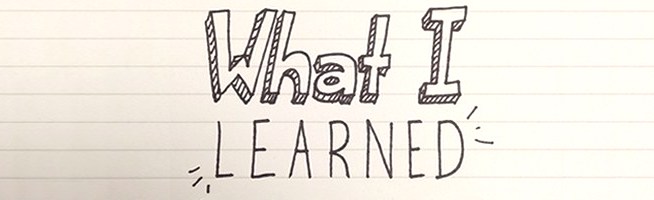 What I
LEARNED